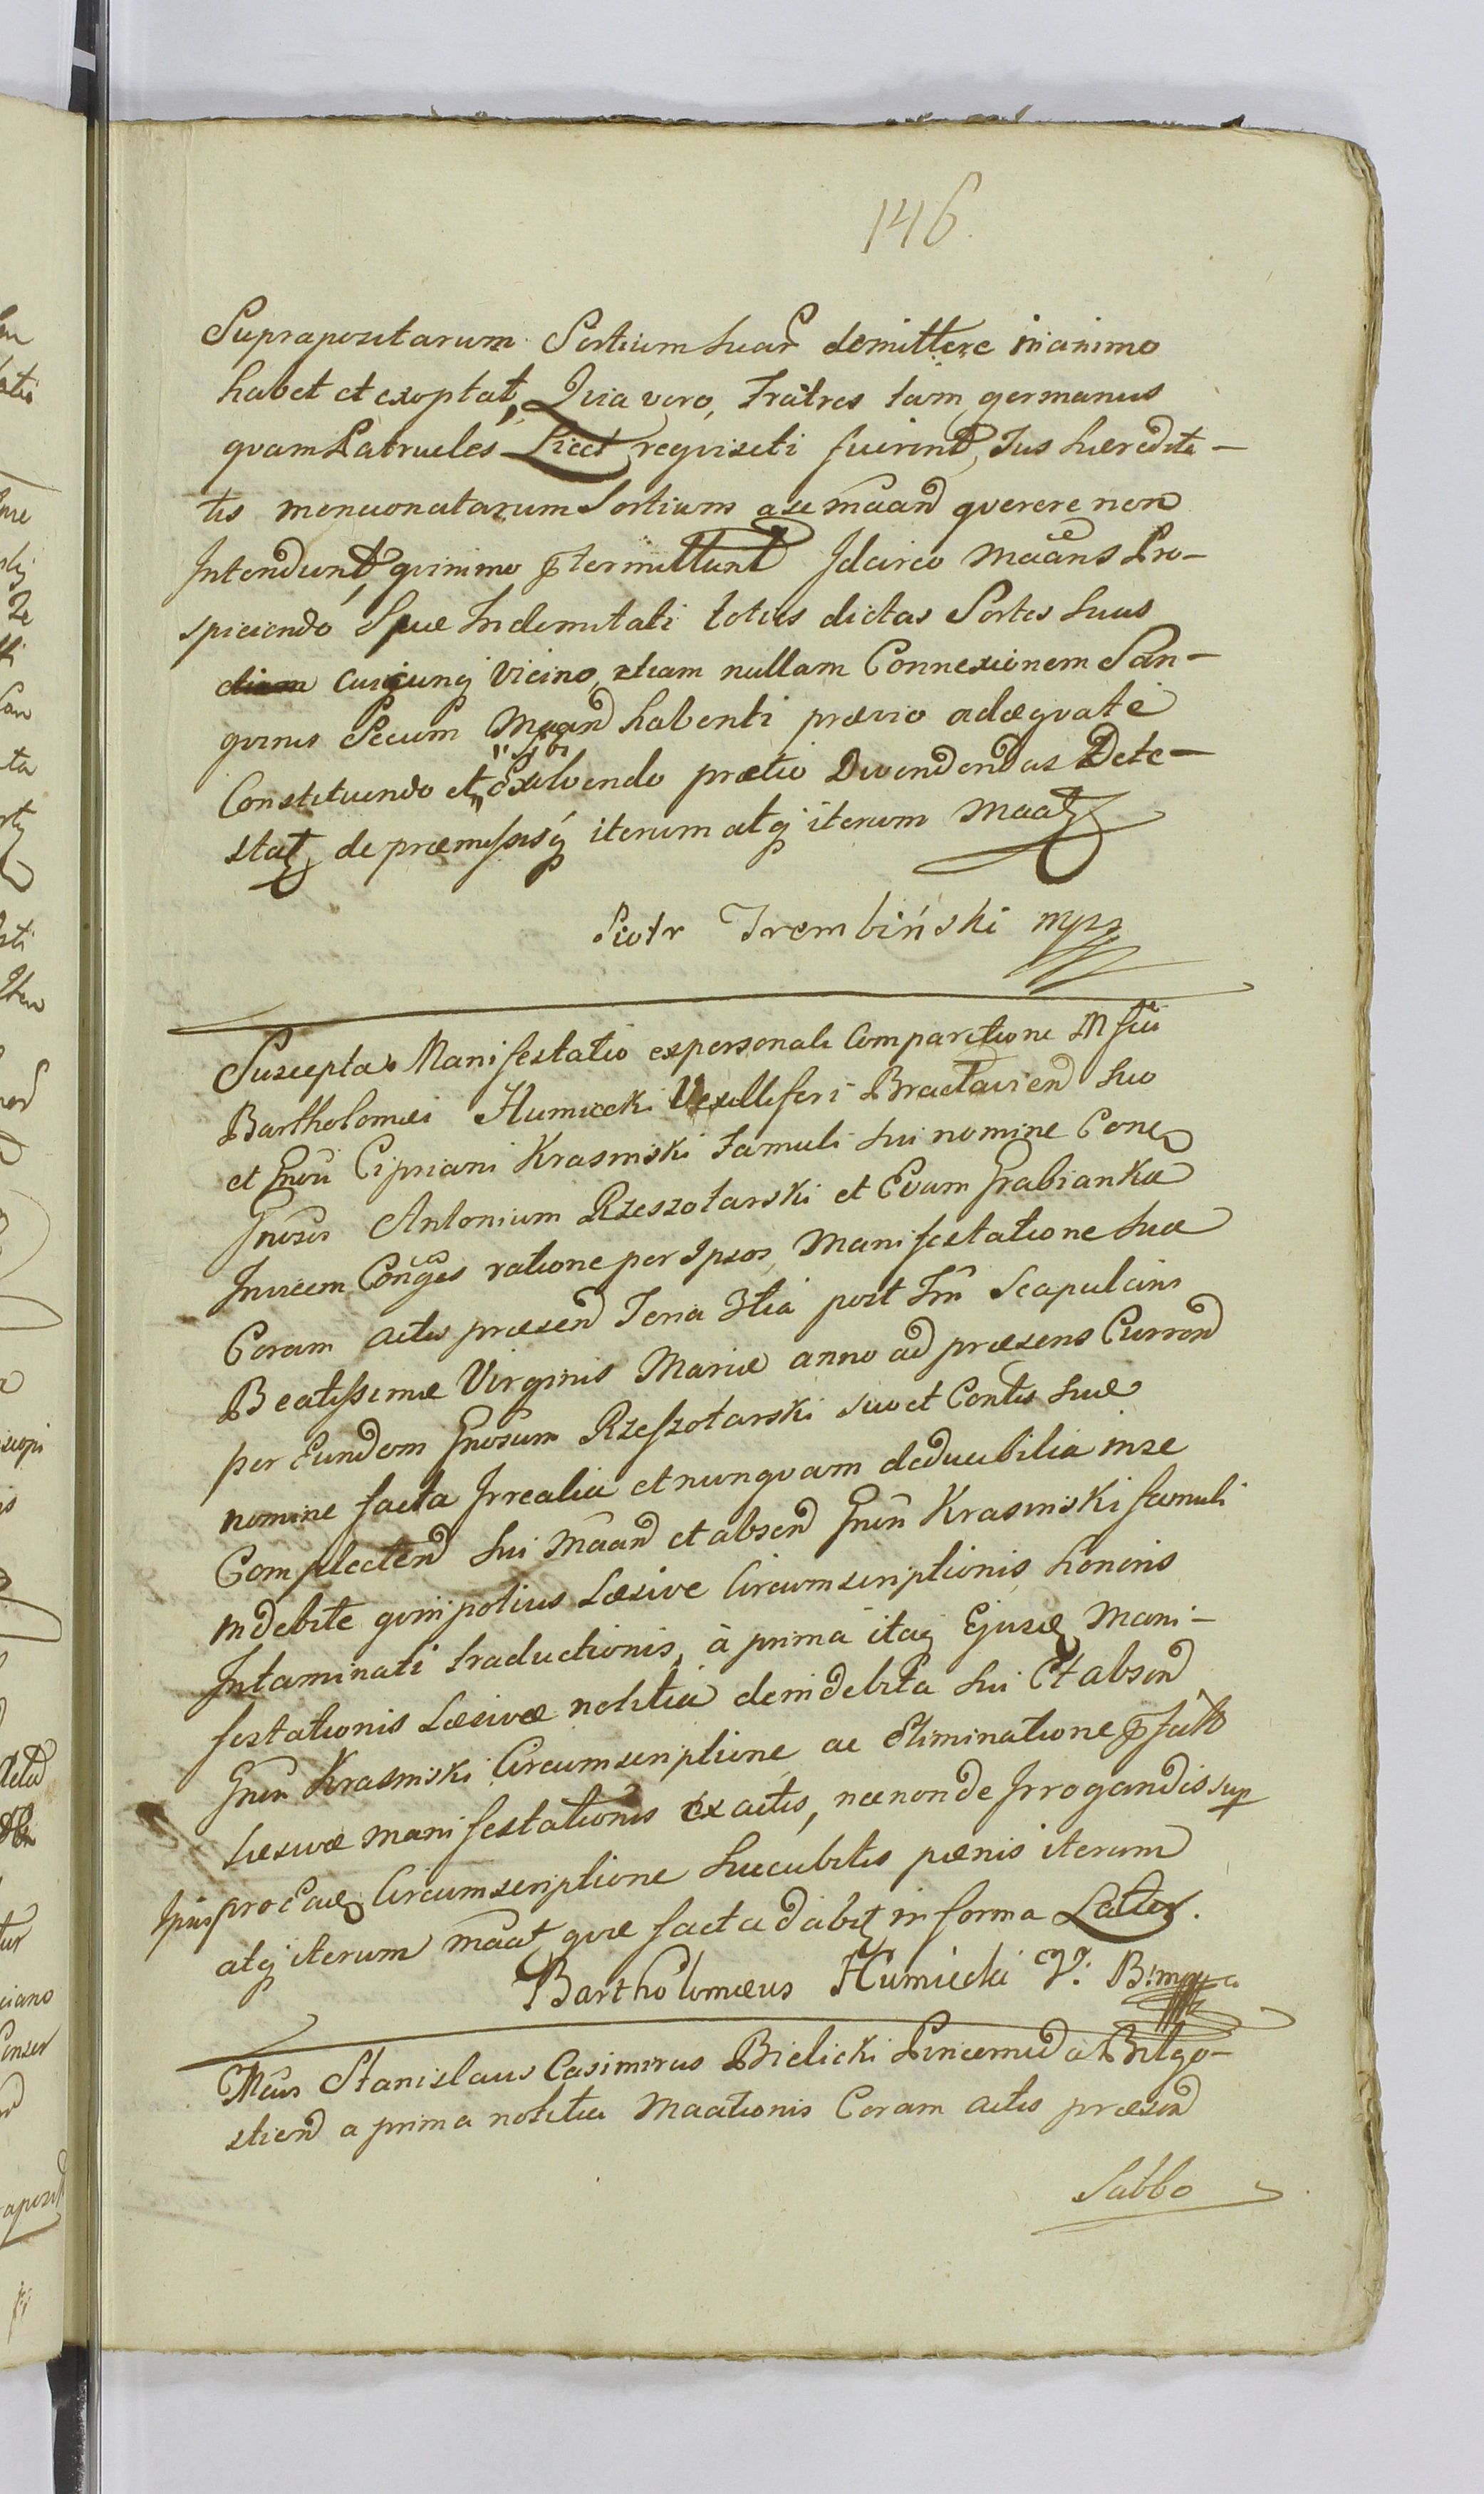 146.
Suprapositarum Sortium suar demittere in animo
habet et exoptat, Quia vero, Fratres tam germanus
quam Patrueles Licet requisiti fuerint, Jus hæredita-
tis mencionatarum Sortium a se maand qverere non
Intendunt, qvinimo ptermittunt Idcirco Maans Pro-
spiciendo Suæ Indemnitati totus dictas Sortes suas
cuicunq Vicino, etiam nullam Connexionem San-
gvinis Secum Maand habenti prævio adæqvate
Constituendo et "sibi" Exolvendo prætio Divendendas Dete-
stat, de præmissisq iterum atq iterum Maat
Piotr Trembiński mpp
Suscepta Manifestatio ex personali Comparitione M fici
Bartholomæi Humiecki Vexilliferi Braclavien suo
et Gneri Cipriani Krasinski Famuli sui nomine Contra
Gnosos Antonium Rzeszotarski et Evam Grabianka
Invicem Conges ratione per Ipsos, Manifestatione sua
Coram actis præsend Feria 3tia post Fm Scapularis
Beatissimæ Virginis Mariæ anno ad præsens Currend
per Eundem Gnosum Rzeszotarski suo et Contis suæ
nomine facta Irrealia et nunqvam deducibilia in se
Complectend sui Maand et absend Gnen Krasinski famuli
indebite qvin potius Læsive Circumscriptionis, honoris
Intaminati traductionis, à prima itaq Ejusd Mani-
festationis Læsivæ notitia de indebita sui Et absend
Gnen Krasinski Circumscriptione ac Eliminatione pfato
Læsivæ manifestationis ex actis, nec non de Irrogandis sup
Ipsis pro Ead Circumscriptione succubitis pænis iterum
atq iterum maat, qvæ facta dabit in forma Later.
Bartholomæus Humiecki V. B. mppa
Mcus Stanislaus Casimirus Bielicki Pincernid a Bilgo-
stiend a prima notitia Maationis Coram actis præsend
Sabbo